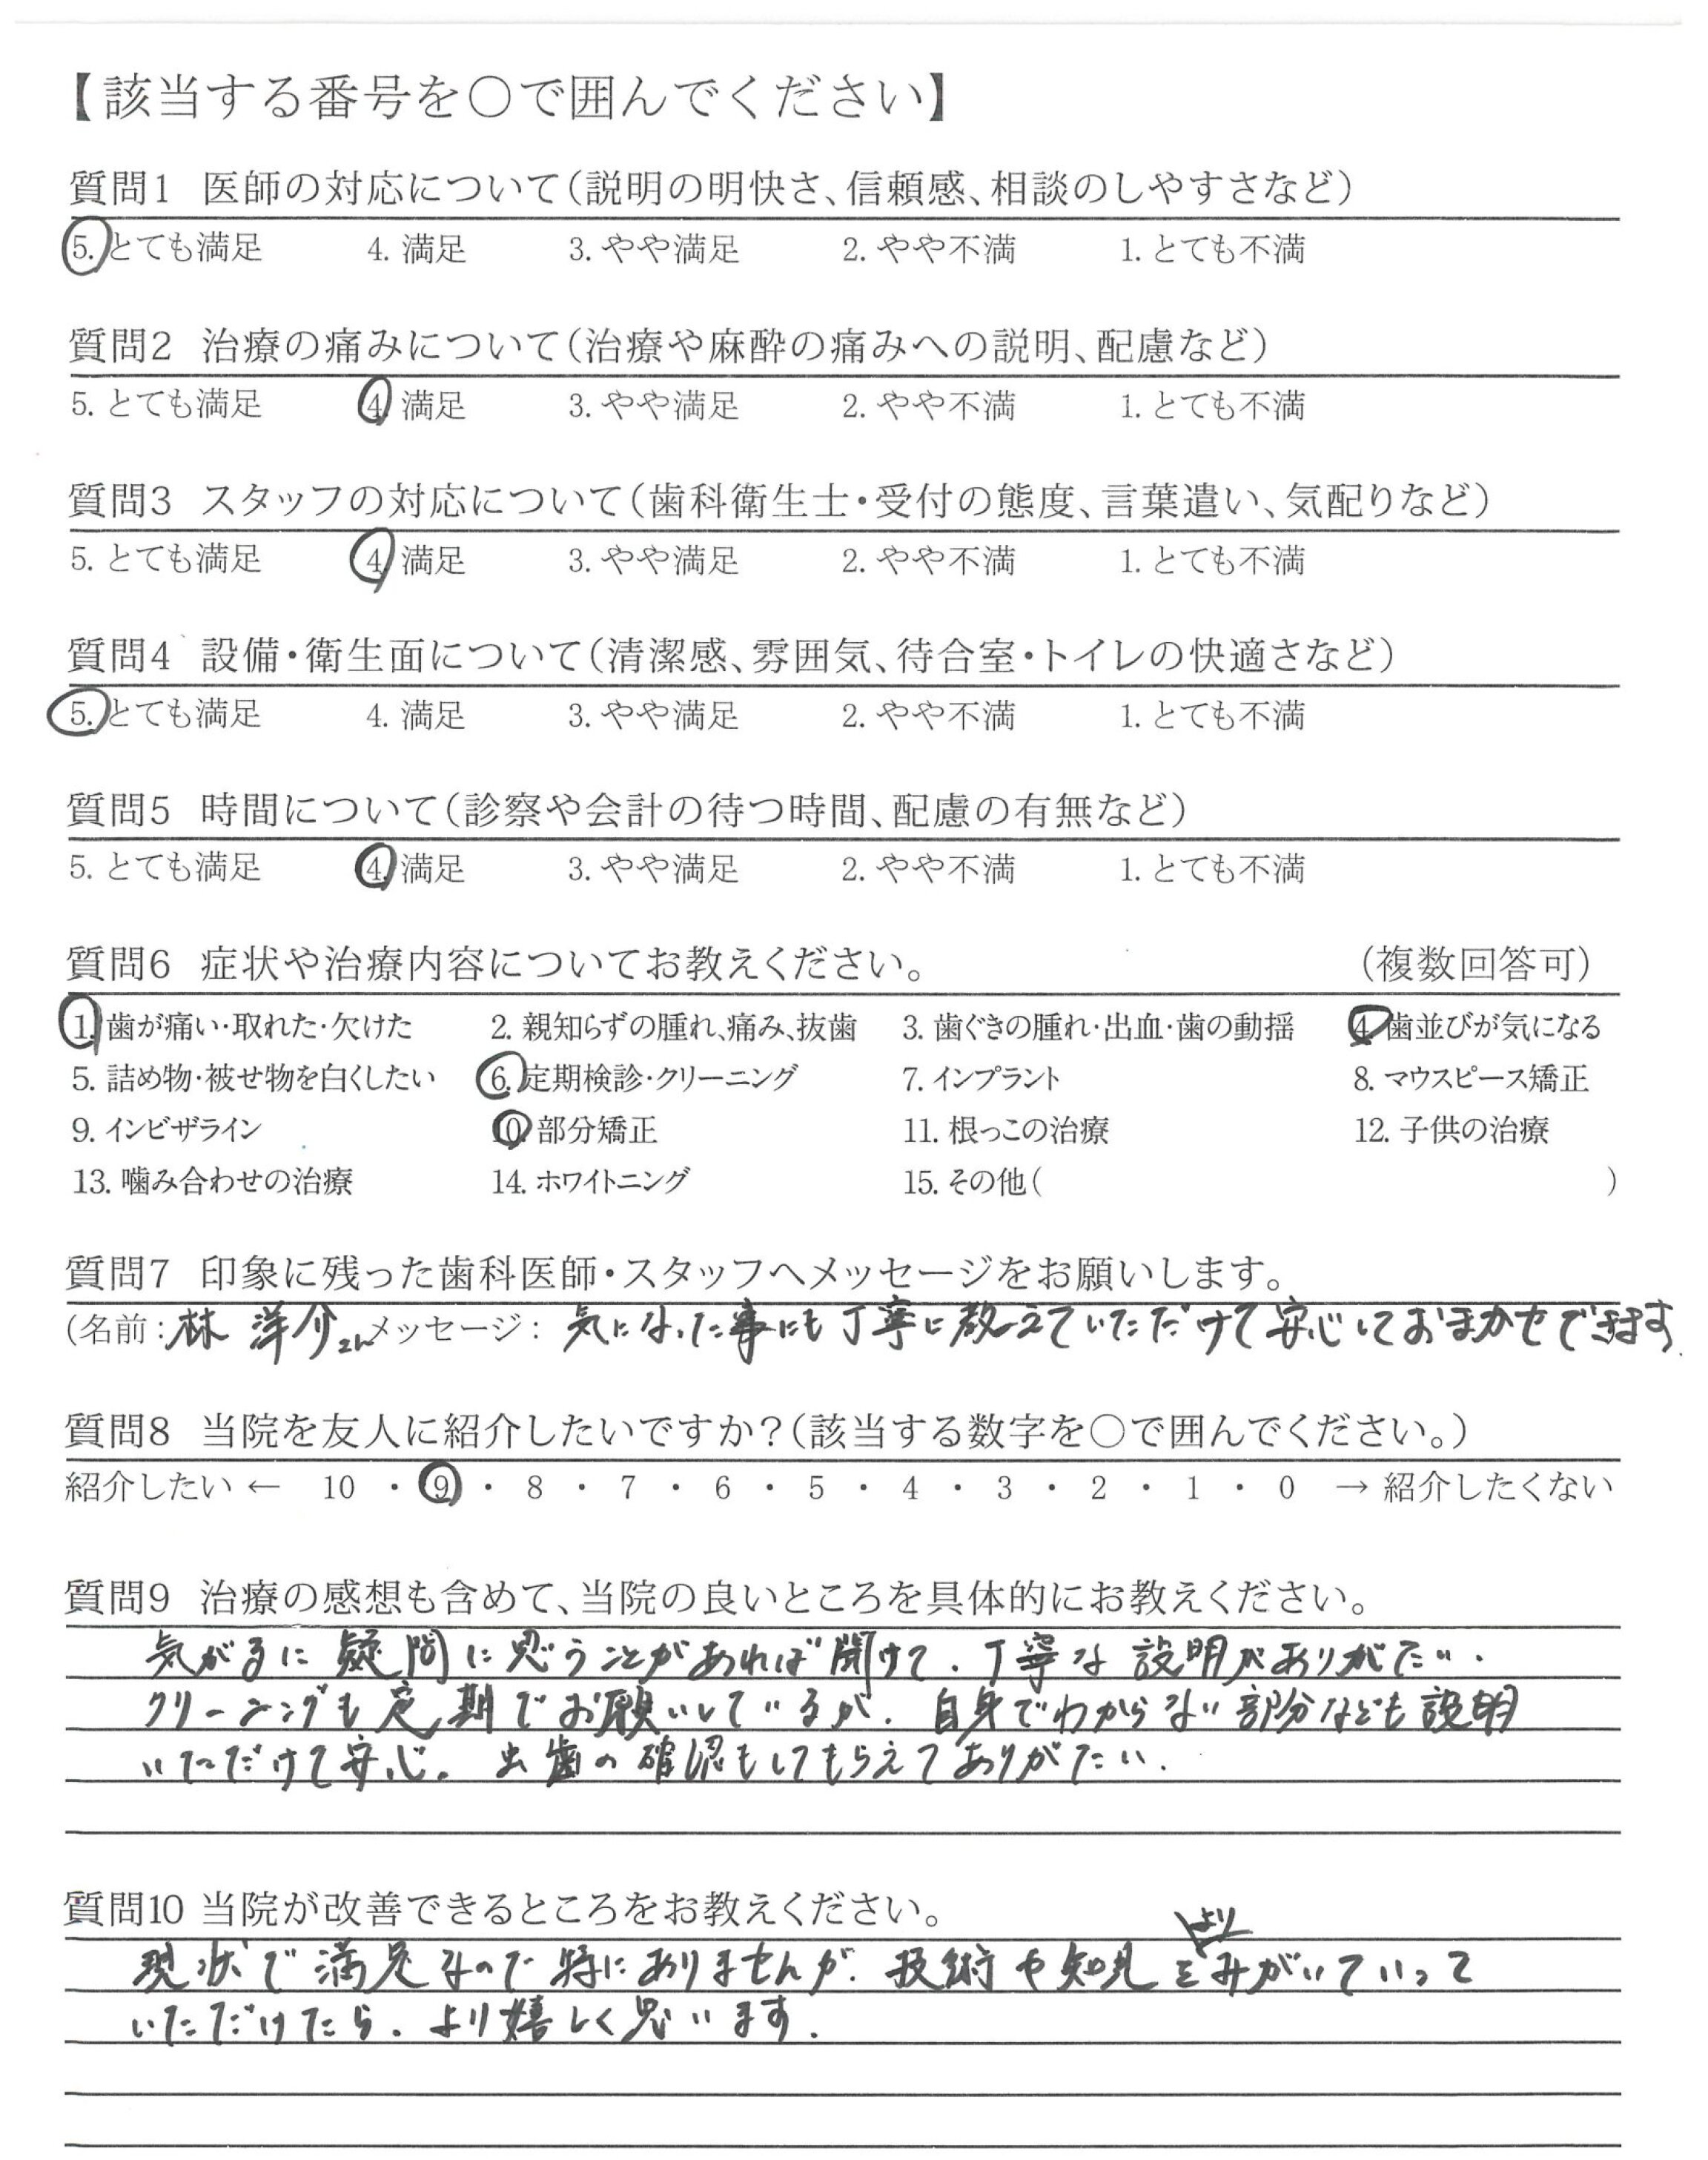 【該当する番号を〇で囲んでください】
質問1 医師の対応について(説明の明快さ、信頼感、相談のしやすさなど)
5. とても満足 4. 満足 3. やや満足 2. やや不満 1. とても不満
質問2 治療の痛みについて(治療や麻酔の痛みへの説明、配慮など)
5. とても満足 4. 満足 3. やや満足 2. やや不満 1. とても不満
質問3 スタッフの対応について(歯科衛生士・受付の態度、言葉遣い、気配りなど)
5. とても満足 4. 満足 3. やや満足 2. やや不満 1. とても不満
質問4 設備・衛生面について(清潔感、雰囲気、待合室・トイレの快適さなど)
5. とても満足 4. 満足 3. やや満足 2. やや不満 1. とても不満
質問5 時間について(診察や会計の待つ時間、配慮の有無など)
5. とても満足 4. 満足 3. やや満足 2. やや不満 1. とても不満
質問6 症状や治療内容についてお教えください。 (複数回答可)
1. 歯が痛い・取れた・欠けた 2. 親知らずの腫れ、痛み、抜歯 3. 歯ぐきの腫れ・出血・歯の動揺 4. 歯並びが気になる
5. 詰め物・被せ物を白くしたい 6. 定期検診・クリーニング 7. インプラント 8. マウスピース矯正
9. インビザライン 10. 部分矯正 11. 根っこの治療 12. 子供の治療
13. 噛み合わせの治療 14. ホワイトニング 15. その他( )
質問7 印象に残った歯科医師・スタッフへメッセージをお願いします。
(名前:林 洋介さん メッセージ: 気になった事にも丁寧に教えていただけて安心しておまかせできます
質問8 当院を友人に紹介したいですか?(該当する数字を〇で囲んでください。)
紹介したい ← 10 ・ 9 ・ 8 ・ 7 ・ 6 ・ 5 ・ 4 ・ 3 ・ 2 ・ 1 ・ 0 → 紹介したくない
質問9 治療の感想も含めて、当院の良いところを具体的にお教えください。
気がるに疑問に思うことがあれば聞けて、丁寧な説明がありがたい。
クリーニングも定期でお願いしているが、自身でわからない部分なども説明
いただけて安心。虫歯の確認もしてもらえてありがたい。
質問10 当院が改善できるところをお教えください。
現状で満足なので特にありませんが、技術や知見をよりみがいていって
いただけたら、より嬉しく思います。